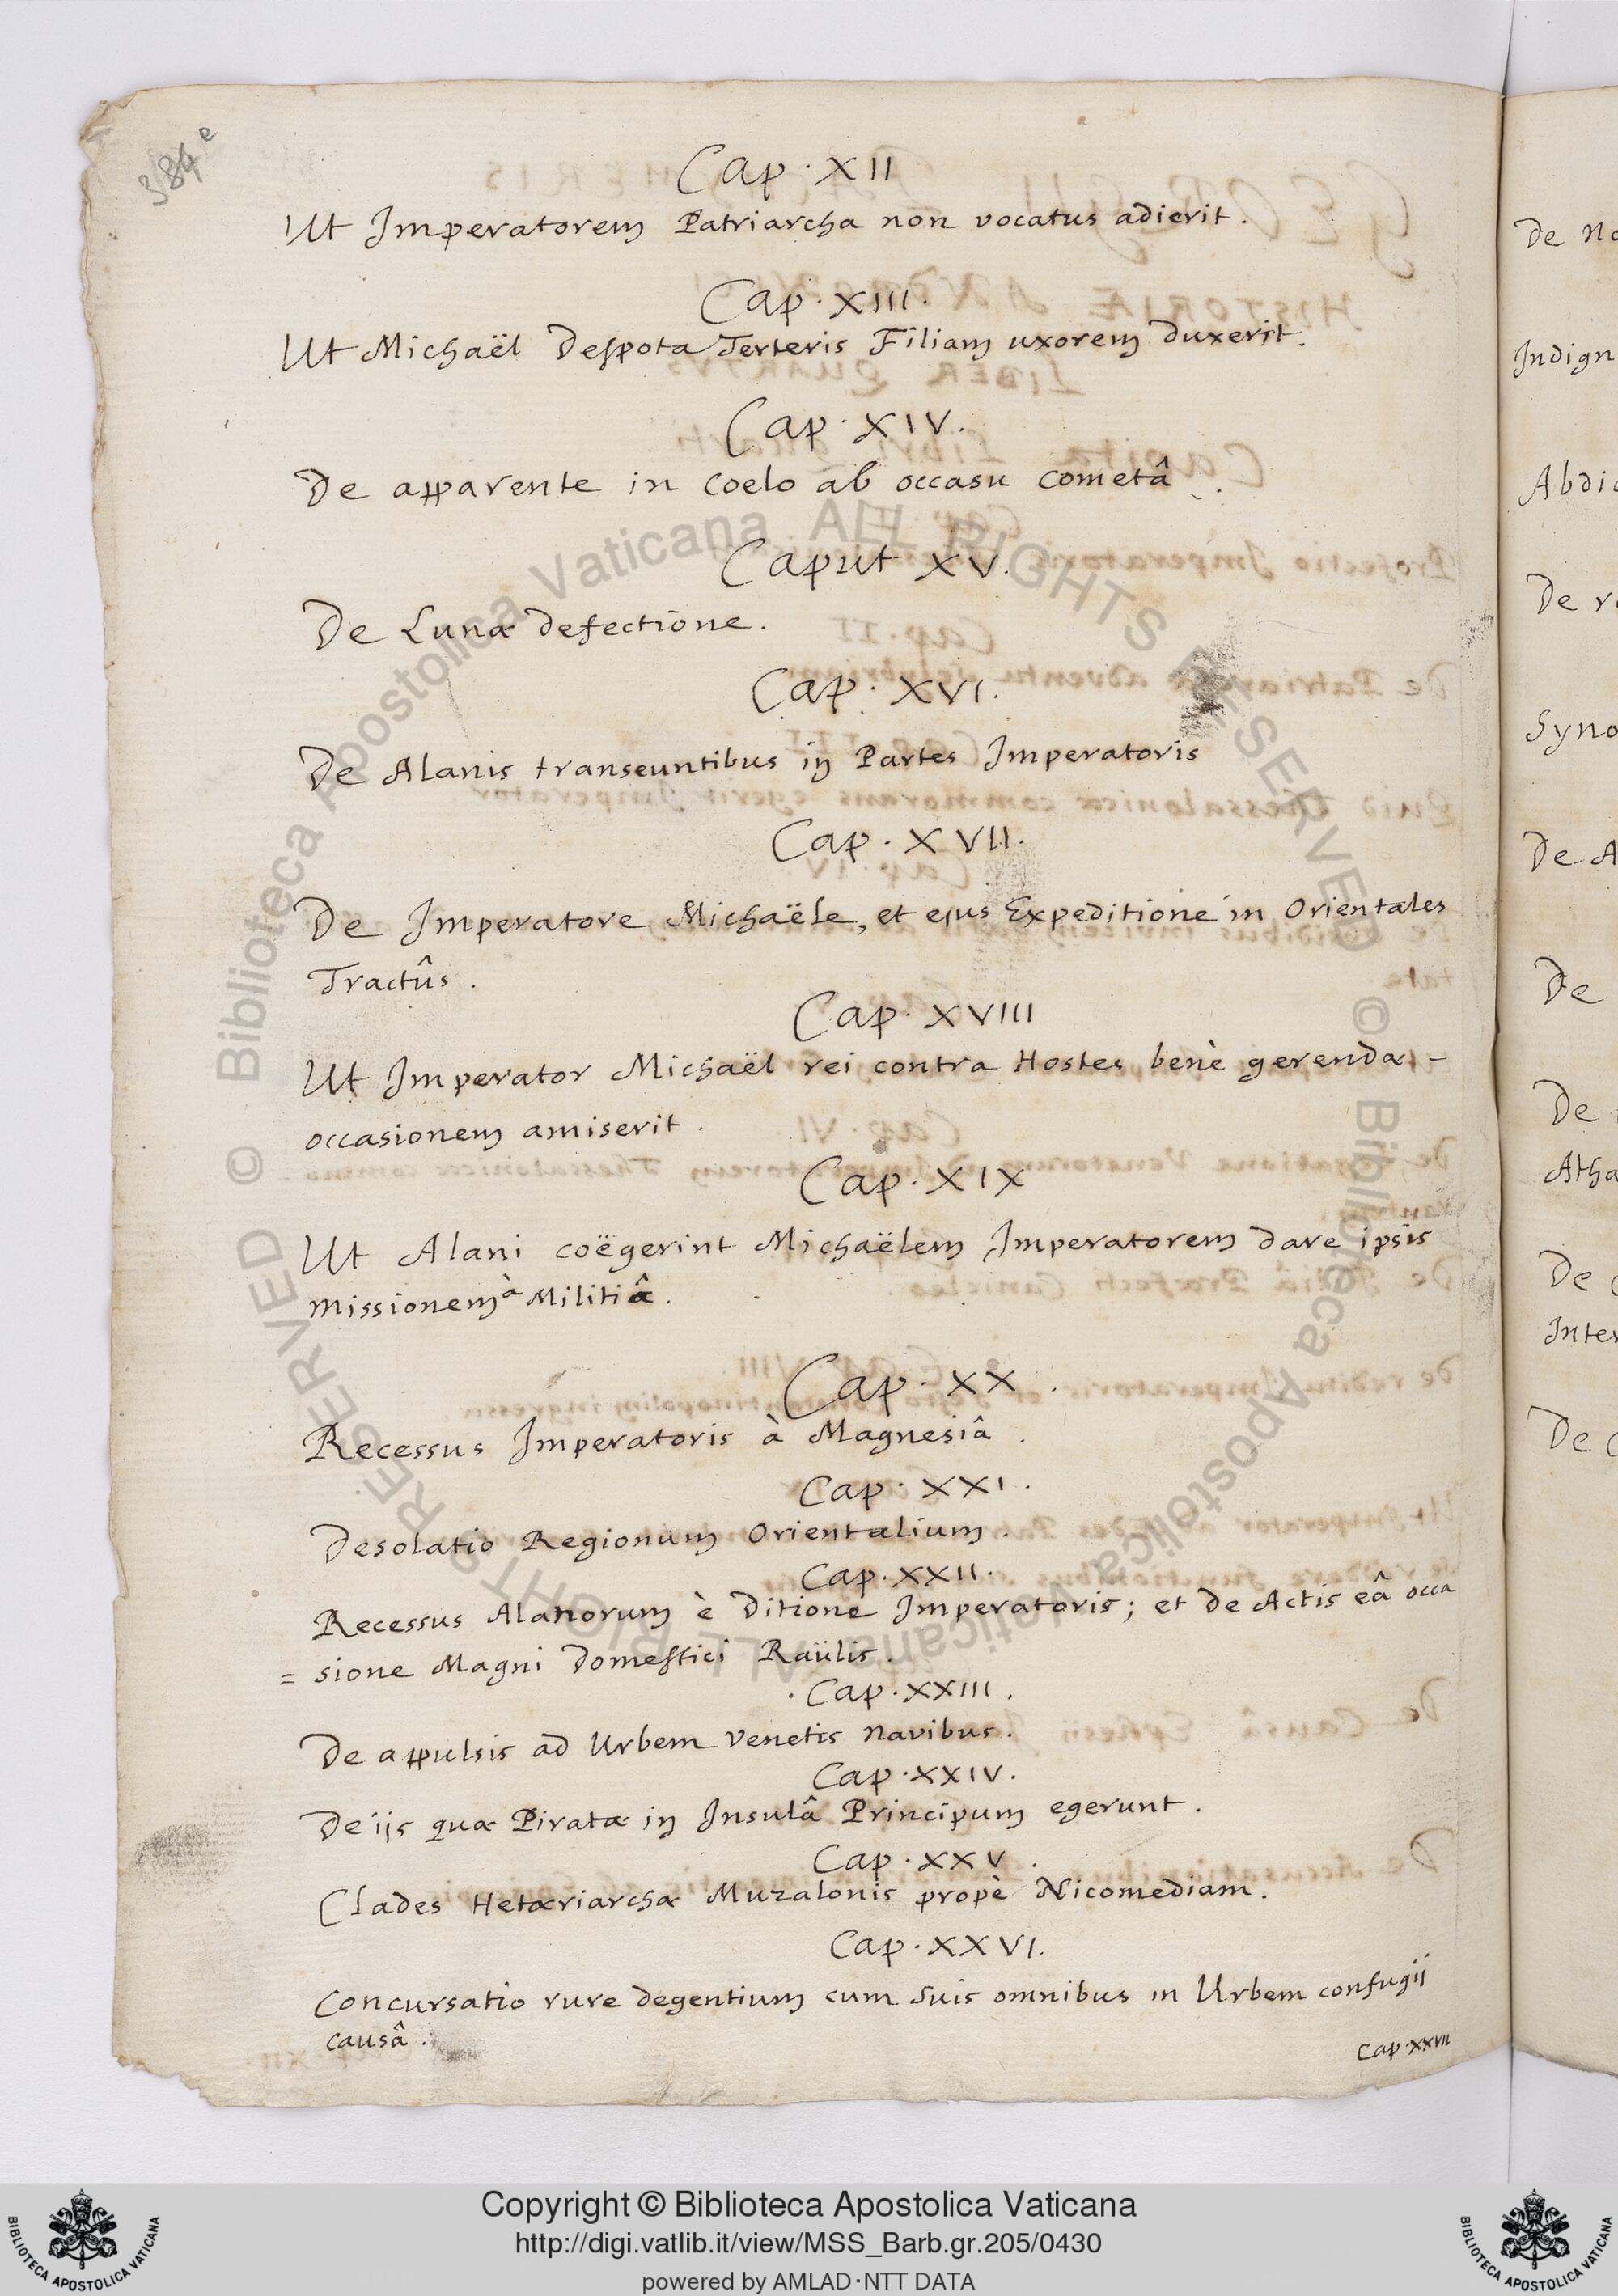 384e
Cap. XII
Ut Imperatorem Patriarcha non vocatus adierit.
Cap. XIII.
Ut Michaël Despota Terteris Filiam uxorem duxerit.
Cap. XIV.
De apparente in coelo ab occasu cometâ.
Caput XV.
De Lunæ defectione.
Cap. XVI.
De Alanis transeuntibus in Partes Imperatoris
Cap. XVII.
De Imperatore Michaële, et ejus Expeditione in Orientales
Tractûs.
Cap. XVIII
Ut Imperator Michaël rei contra Hostes benè gerendæ -
occasionem amiserit.
Cap. XIX
Ut Alani coëgerint Michaëlem Imperatorem dare ipsis
missionem à Militiâ.
Cap. XX.
Recessus Imperatoris à Magnesiâ.
Cap. XXI.
Desolatio Regionum Orientalium.
Cap. XXII.
Recessus Alanorum è Ditione Imperatoris; et de Actis eâ occa
= sione Magni Domestici Raülis.
. Cap. XXIII.
De appulsis ad Urbem Venetis navibus.
Cap. XXIV.
De iis quæ Piratæ in Insulâ Principum egerunt.
Cap. XXV.
Clades Hetæriarchæ Muzalonis propè Nicomediam.
Cap. XXVI.
Concursatio rure degentium cum suis omnibus in Urbem confugii
causâ.
Cap. XXVII
De
Indign
Abdic
De
Syno
De A
De
De
Atha
De
Inter
De
© Biblioteca Apostolica Vaticana ALL RIGHTS RESERVED
© Biblioteca Apostolica Vaticana ALL RIGHTS RESERVED
Copyright © Biblioteca Apostolica Vaticana
http://digi.vatlib.it/view/MSS_Barb.gr.205/0430
powered by AMLAD·NTT DATA
BIBLIOTECA APOSTOLICA VATICANA
BIBLIOTECA APOSTOLICA VATICANA